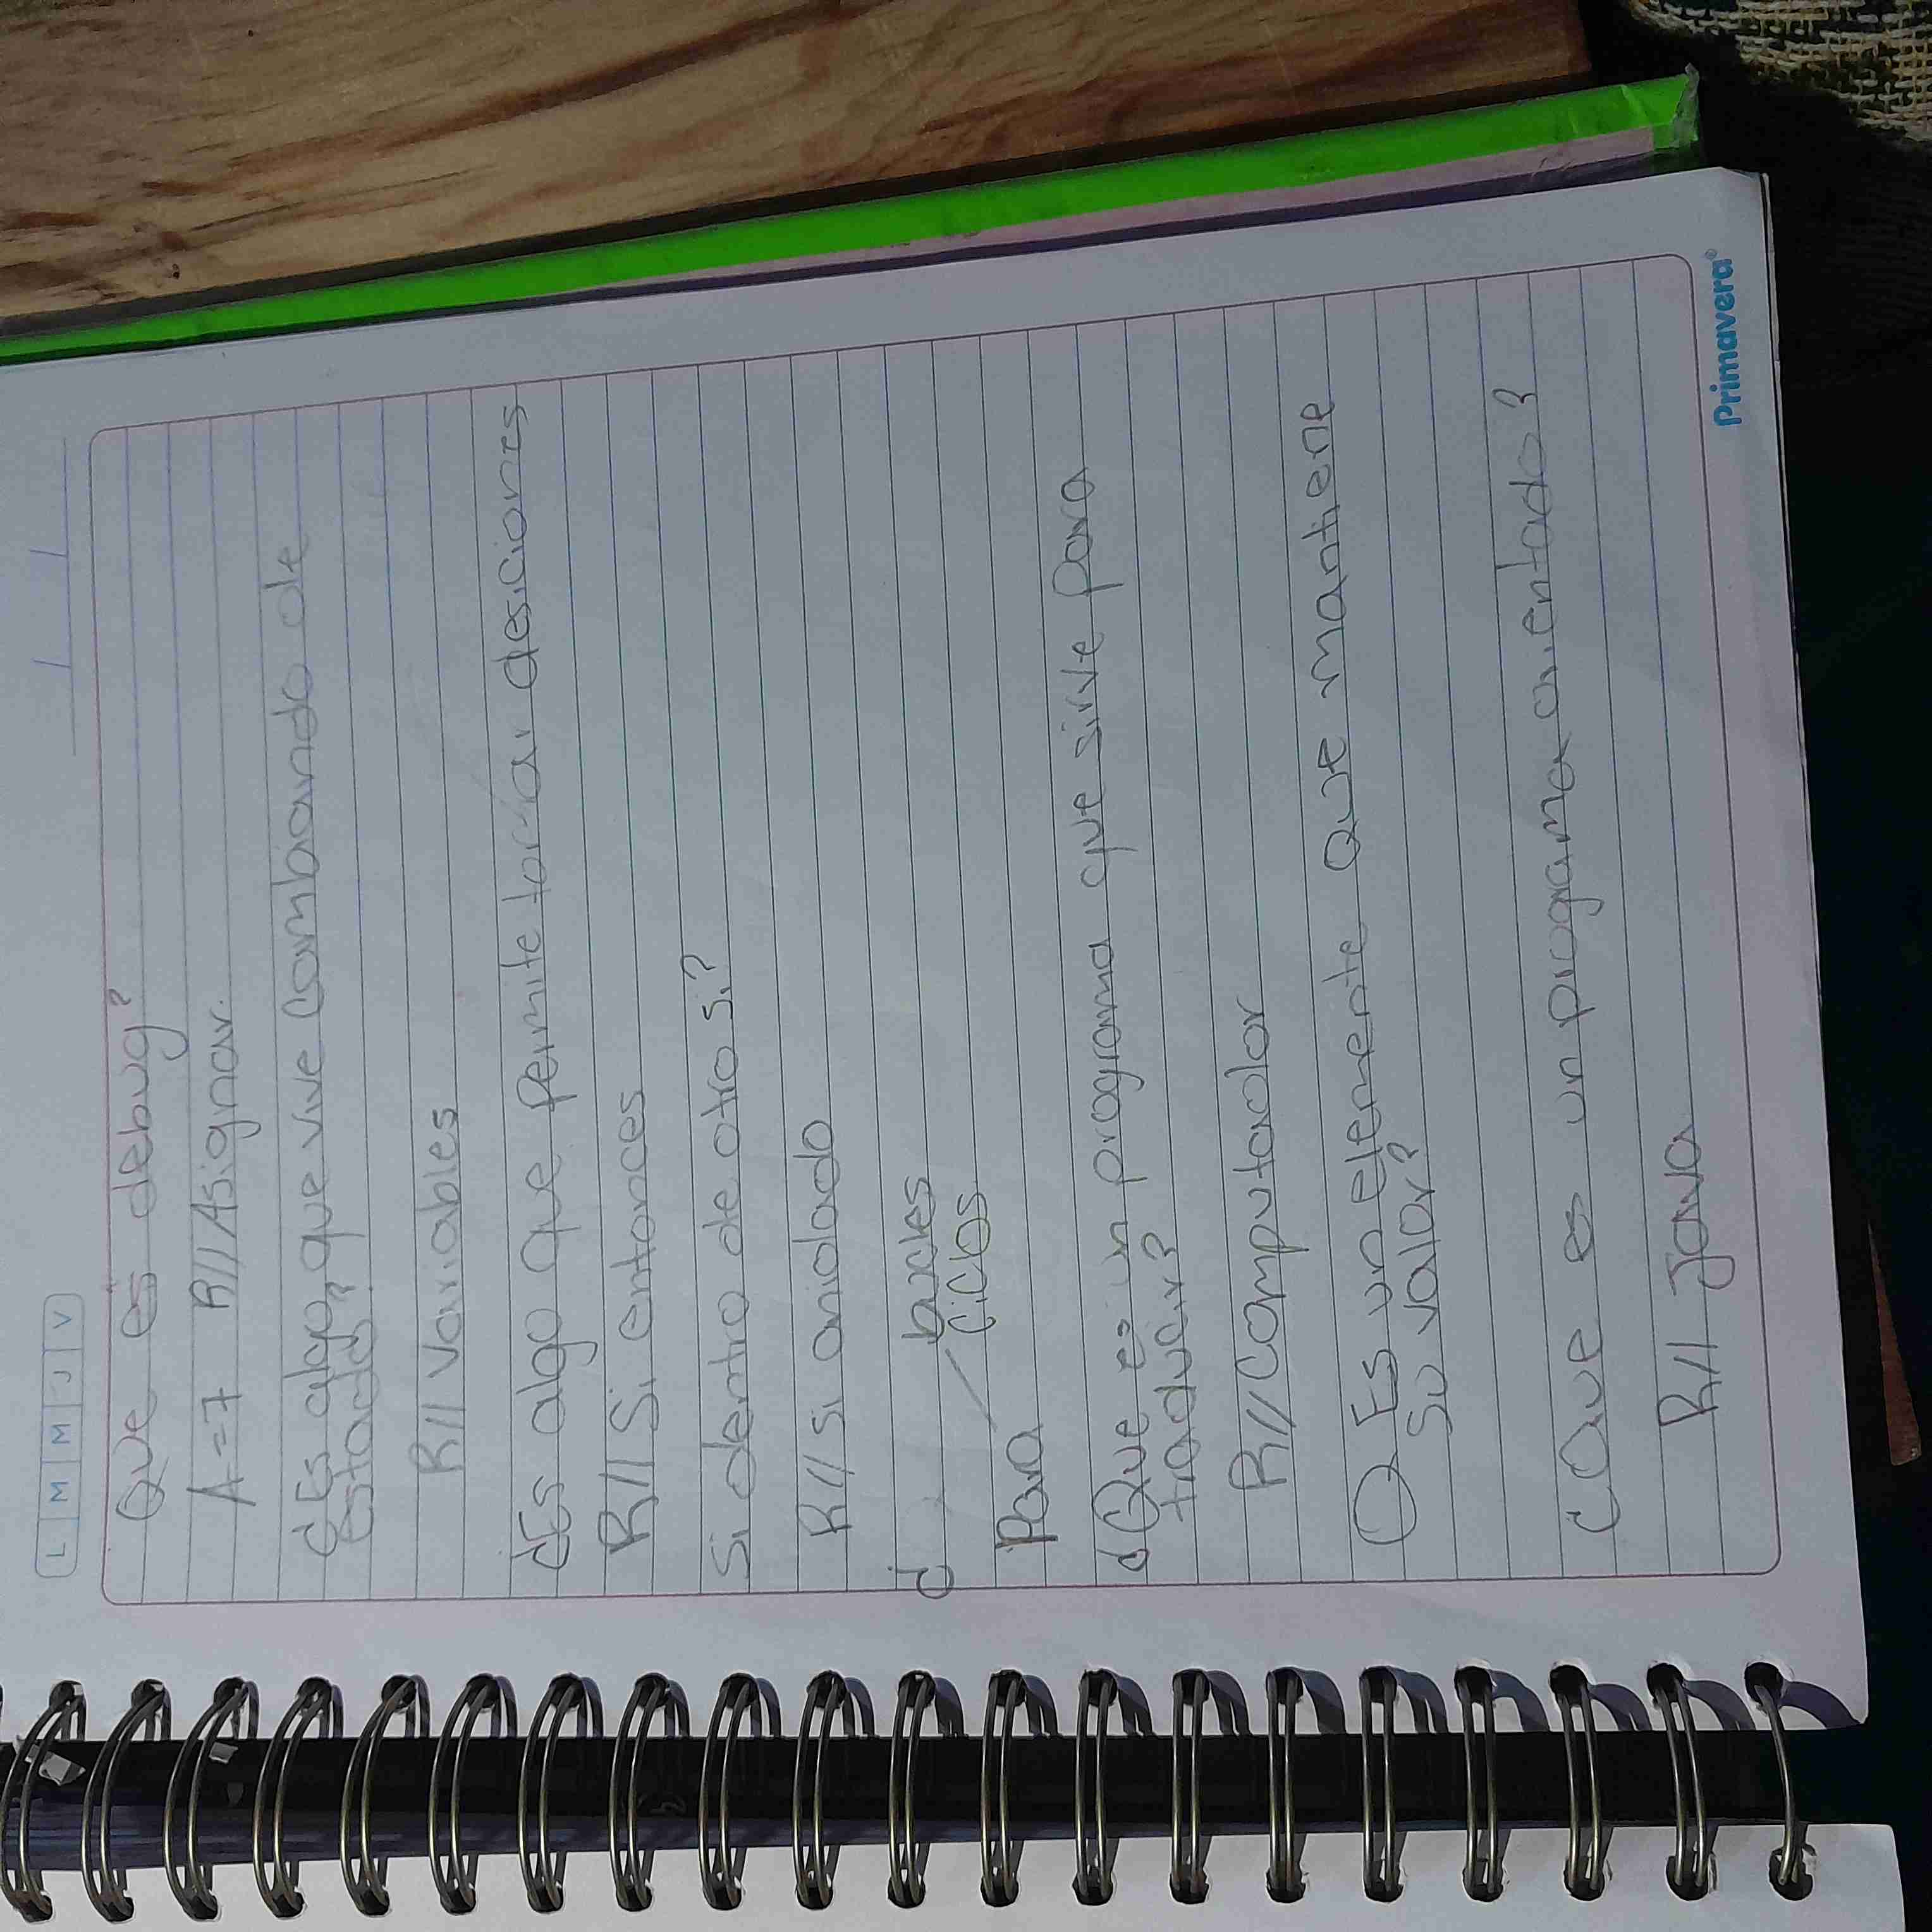 L M M J V
Que es debug?
A=7 R// Asignar.
¿Es algo, que vive cambiando de
estado?
R// Variables
¿Es algo que permite tomar desiciones
R// Si entonces
Si dentro de otro si?
R// si anidado
¿ bucles
Para ciclos
¿Que es un programa que sirve para
traduar?
R// Computador
Es un elemente que mantiene
su valor?
¿Que es un programa orientado?
R// Java
Primavera®